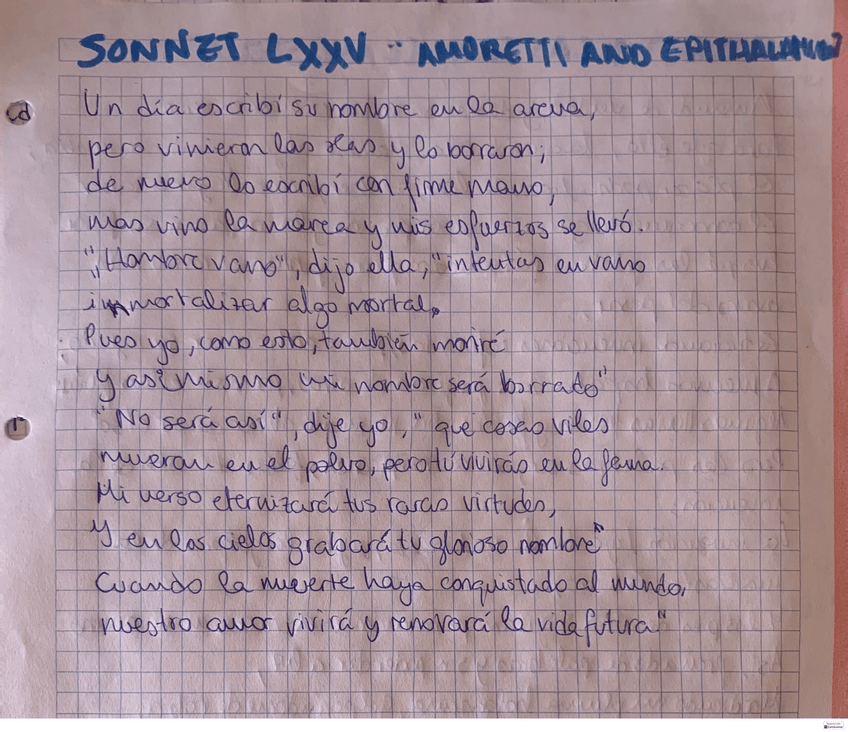 SONNET LXXV - AMORETTI AND EPITHALAMION
Un día escribí su nombre en la arena,
pero vinieron las olas y lo borraron;
de nuevo lo escribí con firme mano,
mas vino la marea y mis esfuerzos se llevó.
"Hombre vano", dijo ella, "intentas en vano
inmortalizar algo mortal.
Pues yo, como esto, también moriré
y así mismo mi nombre será borrado"
"No será así", dije yo, "que cosas viles
mueran en el polvo, pero tú vivirás en la fama.
Mi verso eternizará tus raras virtudes,
y en los cielos grabará tu glorioso nombre"
Cuando la muerte haya conquistado al mundo,
nuestro amor vivirá y renovará la vida futura"